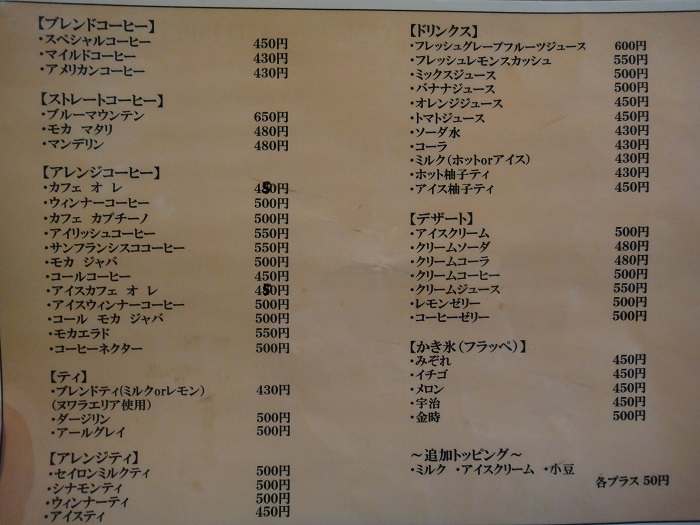 【ブレンドコーヒー】
・スペシャルコーヒー 450円
・マイルドコーヒー 430円
・アメリカンコーヒー 430円
【ストレートコーヒー】
・ブルーマウンテン 650円
・モカ マタリ 480円
・マンデリン 480円
【アレンジコーヒー】
・カフェ オ レ 450円
・ウィンナーコーヒー 500円
・カフェ カプチーノ 500円
・アイリッシュコーヒー 550円
・サンフランシスココーヒー 550円
・モカ ジャバ 500円
・コールコーヒー 450円
・アイスカフェ オ レ 450円
・アイスウィンナーコーヒー 500円
・コール モカ ジャバ 500円
・モカエラド 550円
・コーヒーネクター 500円
【ティ】
・ブレンドティ(ミルクorレモン) 430円
(ヌワラエリア使用)
・ダージリン 500円
・アールグレイ 500円
【アレンジティ】
・セイロンミルクティ 500円
・シナモンティ 500円
・ウィンナーティ 500円
・アイスティ 450円
【ドリンクス】
・フレッシュグレープフルーツジュース 600円
・フレッシュレモンスカッシュ 550円
・ミックスジュース 500円
・バナナジュース 500円
・オレンジジュース 450円
・トマトジュース 450円
・ソーダ水 430円
・コーラ 430円
・ミルク(ホットorアイス) 430円
・ホット柚子ティ 430円
・アイス柚子ティ 450円
【デザート】
・アイスクリーム 500円
・クリームソーダ 480円
・クリームコーラ 480円
・クリームコーヒー 500円
・クリームジュース 550円
・レモンゼリー 500円
・コーヒーゼリー 500円
【かき氷(フラッペ)】
・みぞれ 450円
・イチゴ 450円
・メロン 450円
・宇治 450円
・金時 500円
～追加トッピング～
・ミルク ・アイスクリーム ・小豆
各プラス 50円